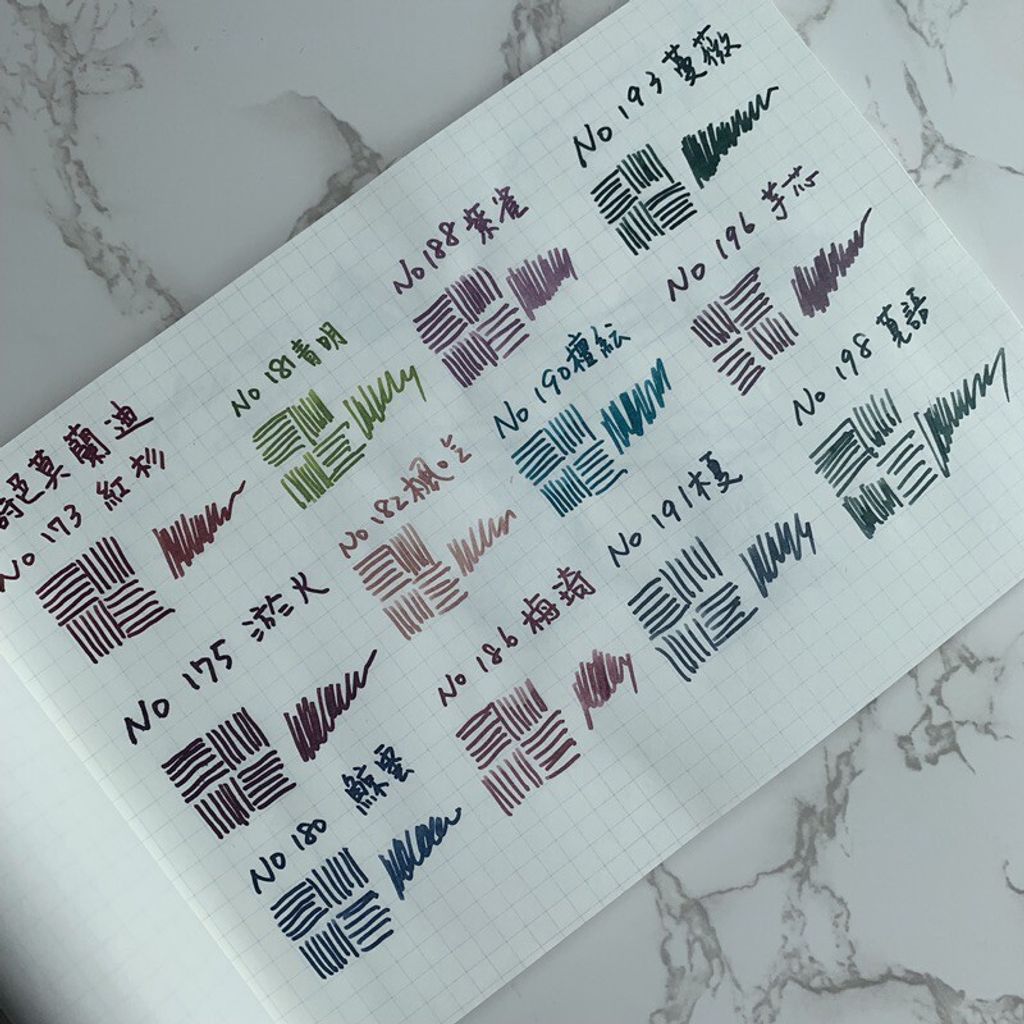 莫蘭迪
No 173 紅杉
No 175 游火
No 180 鯨雲
No 181 青明
No 182 楓
No 186 梅琦
No 188 紫雀
No 190 檀紜
No 191 榎
No 193 蔓薇
No 196 芋芯
No 198 蓂語